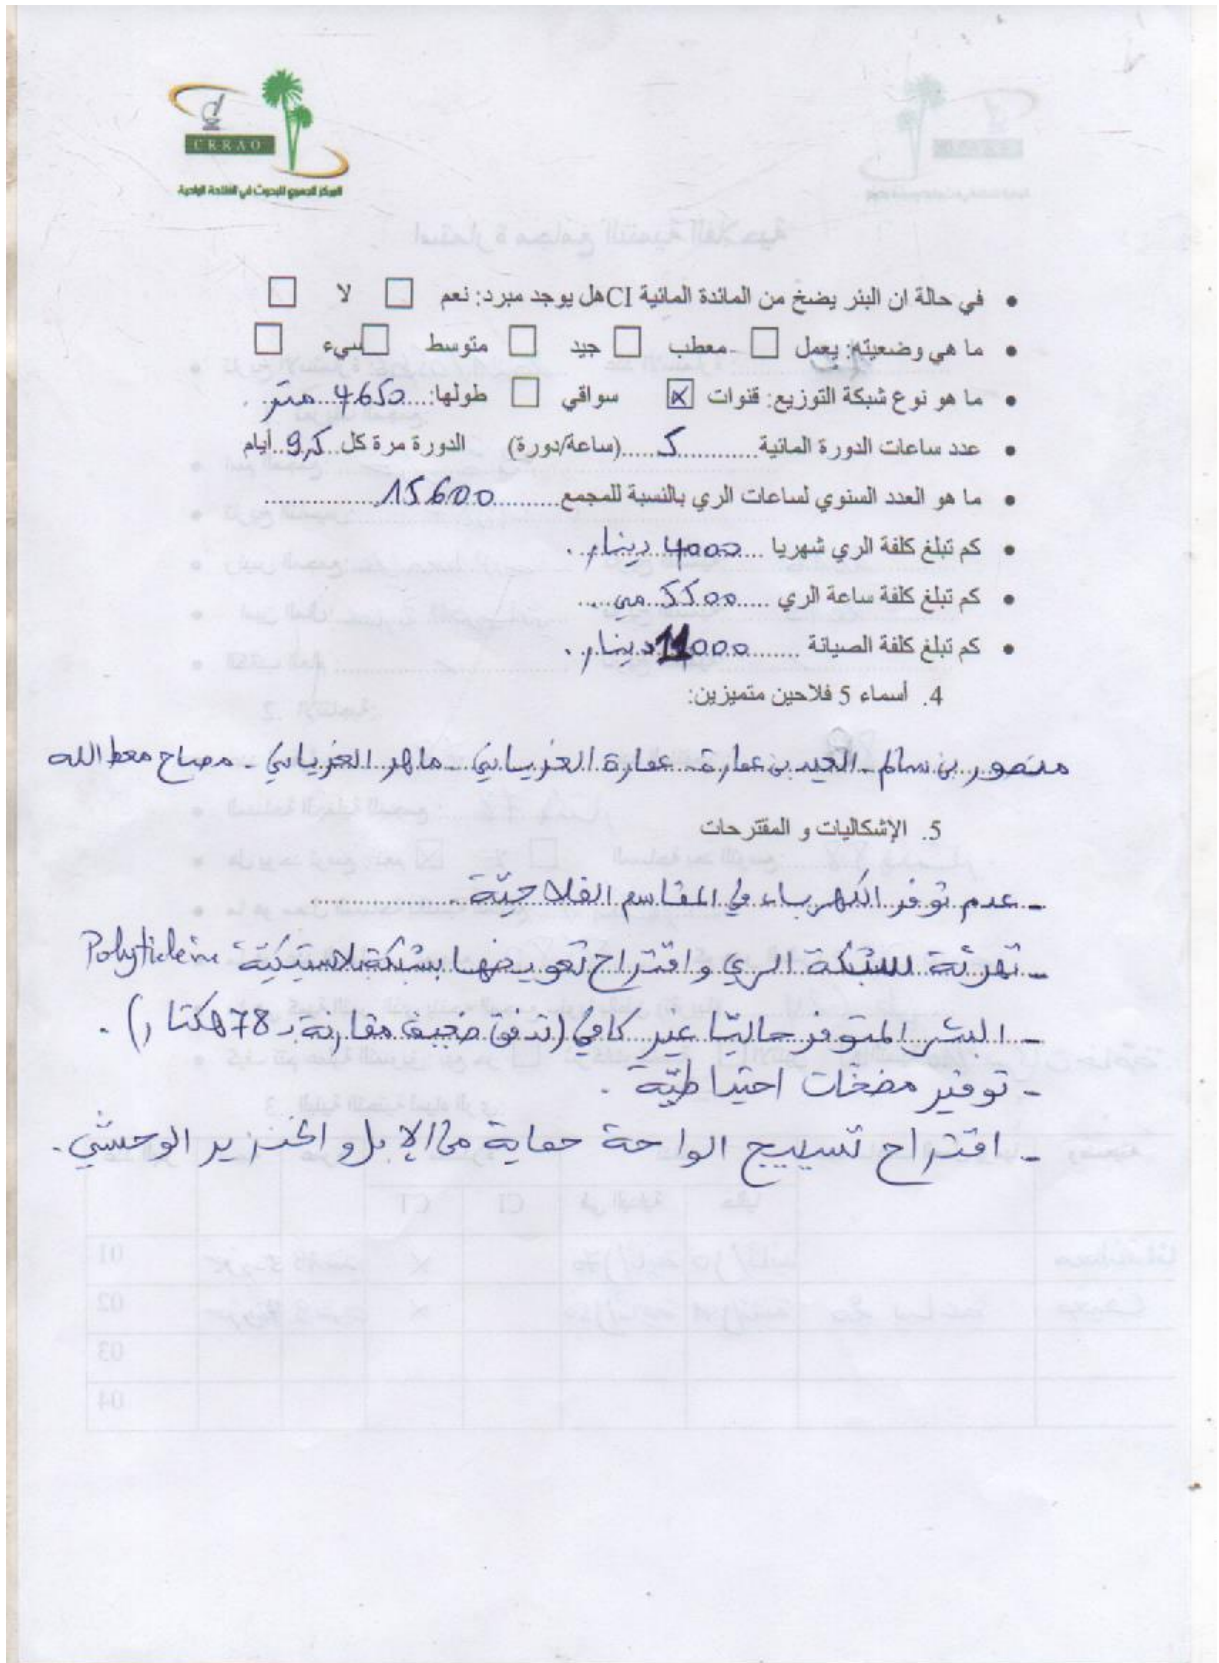 CRRAO
المركز الجهوي للبحوث في الفلاحة الواحية
في حالة ان البئر يضخ من المائدة المائية CI هل يوجد مبرد: نعم ☐ لا ☐
ما هي وضعيته: يعمل ☐ معطب ☐ جيد ☐ متوسط ☐ سيء ☐
ما هو نوع شبكة التوزيع: قنوات ☒ سواقي ☐ طولها: 4650 متر.
عدد ساعات الدورة المائية ............ (ساعة/دورة) الدورة مرة كل ...... أيام
ما هو العدد السنوي لساعات الري بالنسبة للمجمع 15600
كم تبلغ كلفة الري شهريا 4000 دينار.
كم تبلغ كلفة ساعة الري 5500 مي.
كم تبلغ كلفة الصيانة 11000 دينار.
4. أسماء 5 فلاحين متميزين:
منصور بن سالم - العيد بن عمارة - عمارة الغرياني - ماهر الغرياني - مصباح معط الله
5. الإشكاليات و المقترحات
- عدم توفر الكهرباء في المقاسم الفلاحيّة.
- تهرئة للشبكة الري واقتراح تعويضها بشبكة بلاستيكيّة
- البئر المتوفر حاليّا غير كافي (تدفق ضعيف مقارنة بـ 78 هكتار).
- توفير مضخات احتياطيّة.
- اقتراح تسييج الواحة حماية من الإبل و الخنزير الوحشي.